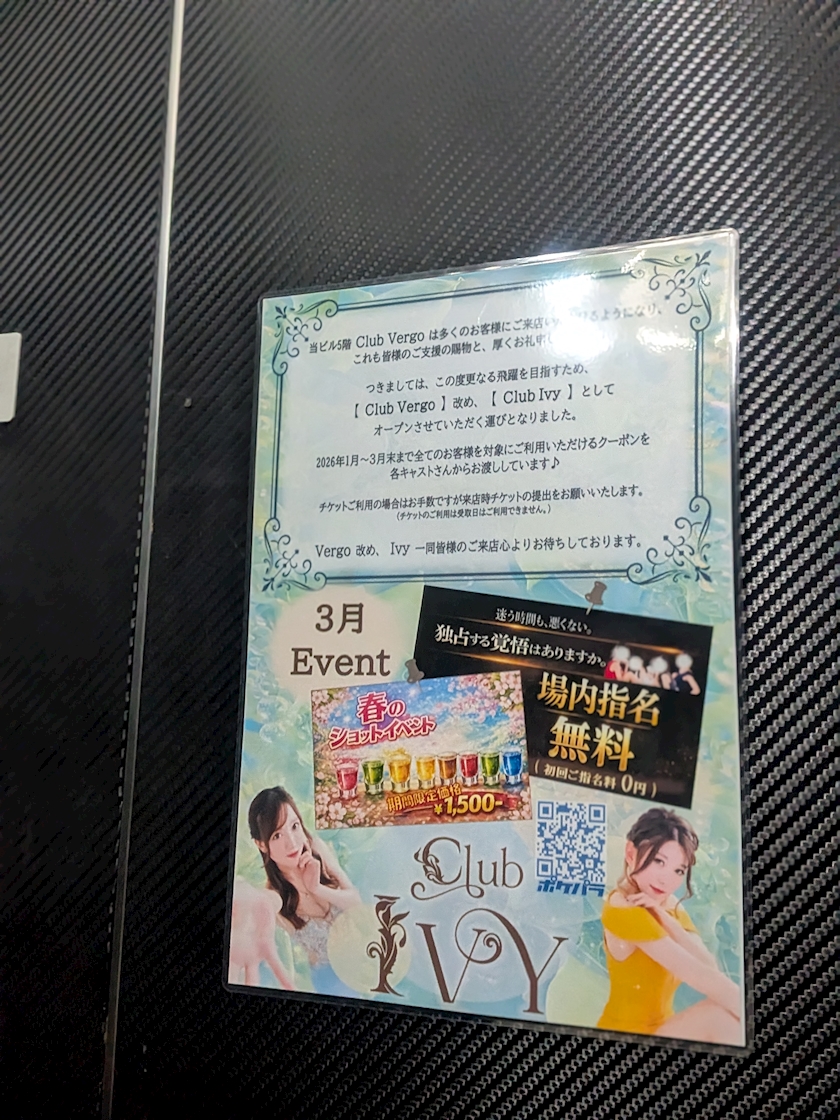 当ビル5階 Club Vergo は多くのお客様にご来店い るようになり、
これも皆様のご支援の賜物と、厚くお礼申し
つきましては、この度更なる飛躍を目指すため、
【 Club Vergo 】改め、【 Club Ivy 】として
オープンさせていただく運びとなりました。
2026年1月〜3月末まで全てのお客様を対象にご利用いただけるクーポンを
各キャストさんからお渡ししています♪
チケットご利用の場合はお手数ですが来店時チケットの提出をお願いいたします。
（チケットのご利用は受取日はご利用できません。）
Vergo 改め、 Ivy 一同皆様のご来店心よりお待ちしております。
3月
Event
迷う時間も、悪くない。
独占する覚悟はありますか。
場内指名
無料
( 初回ご指名料 0円 )
春の
ショットイベント
期間限定価格
¥1,500-
ポケパラ
Club
IVY